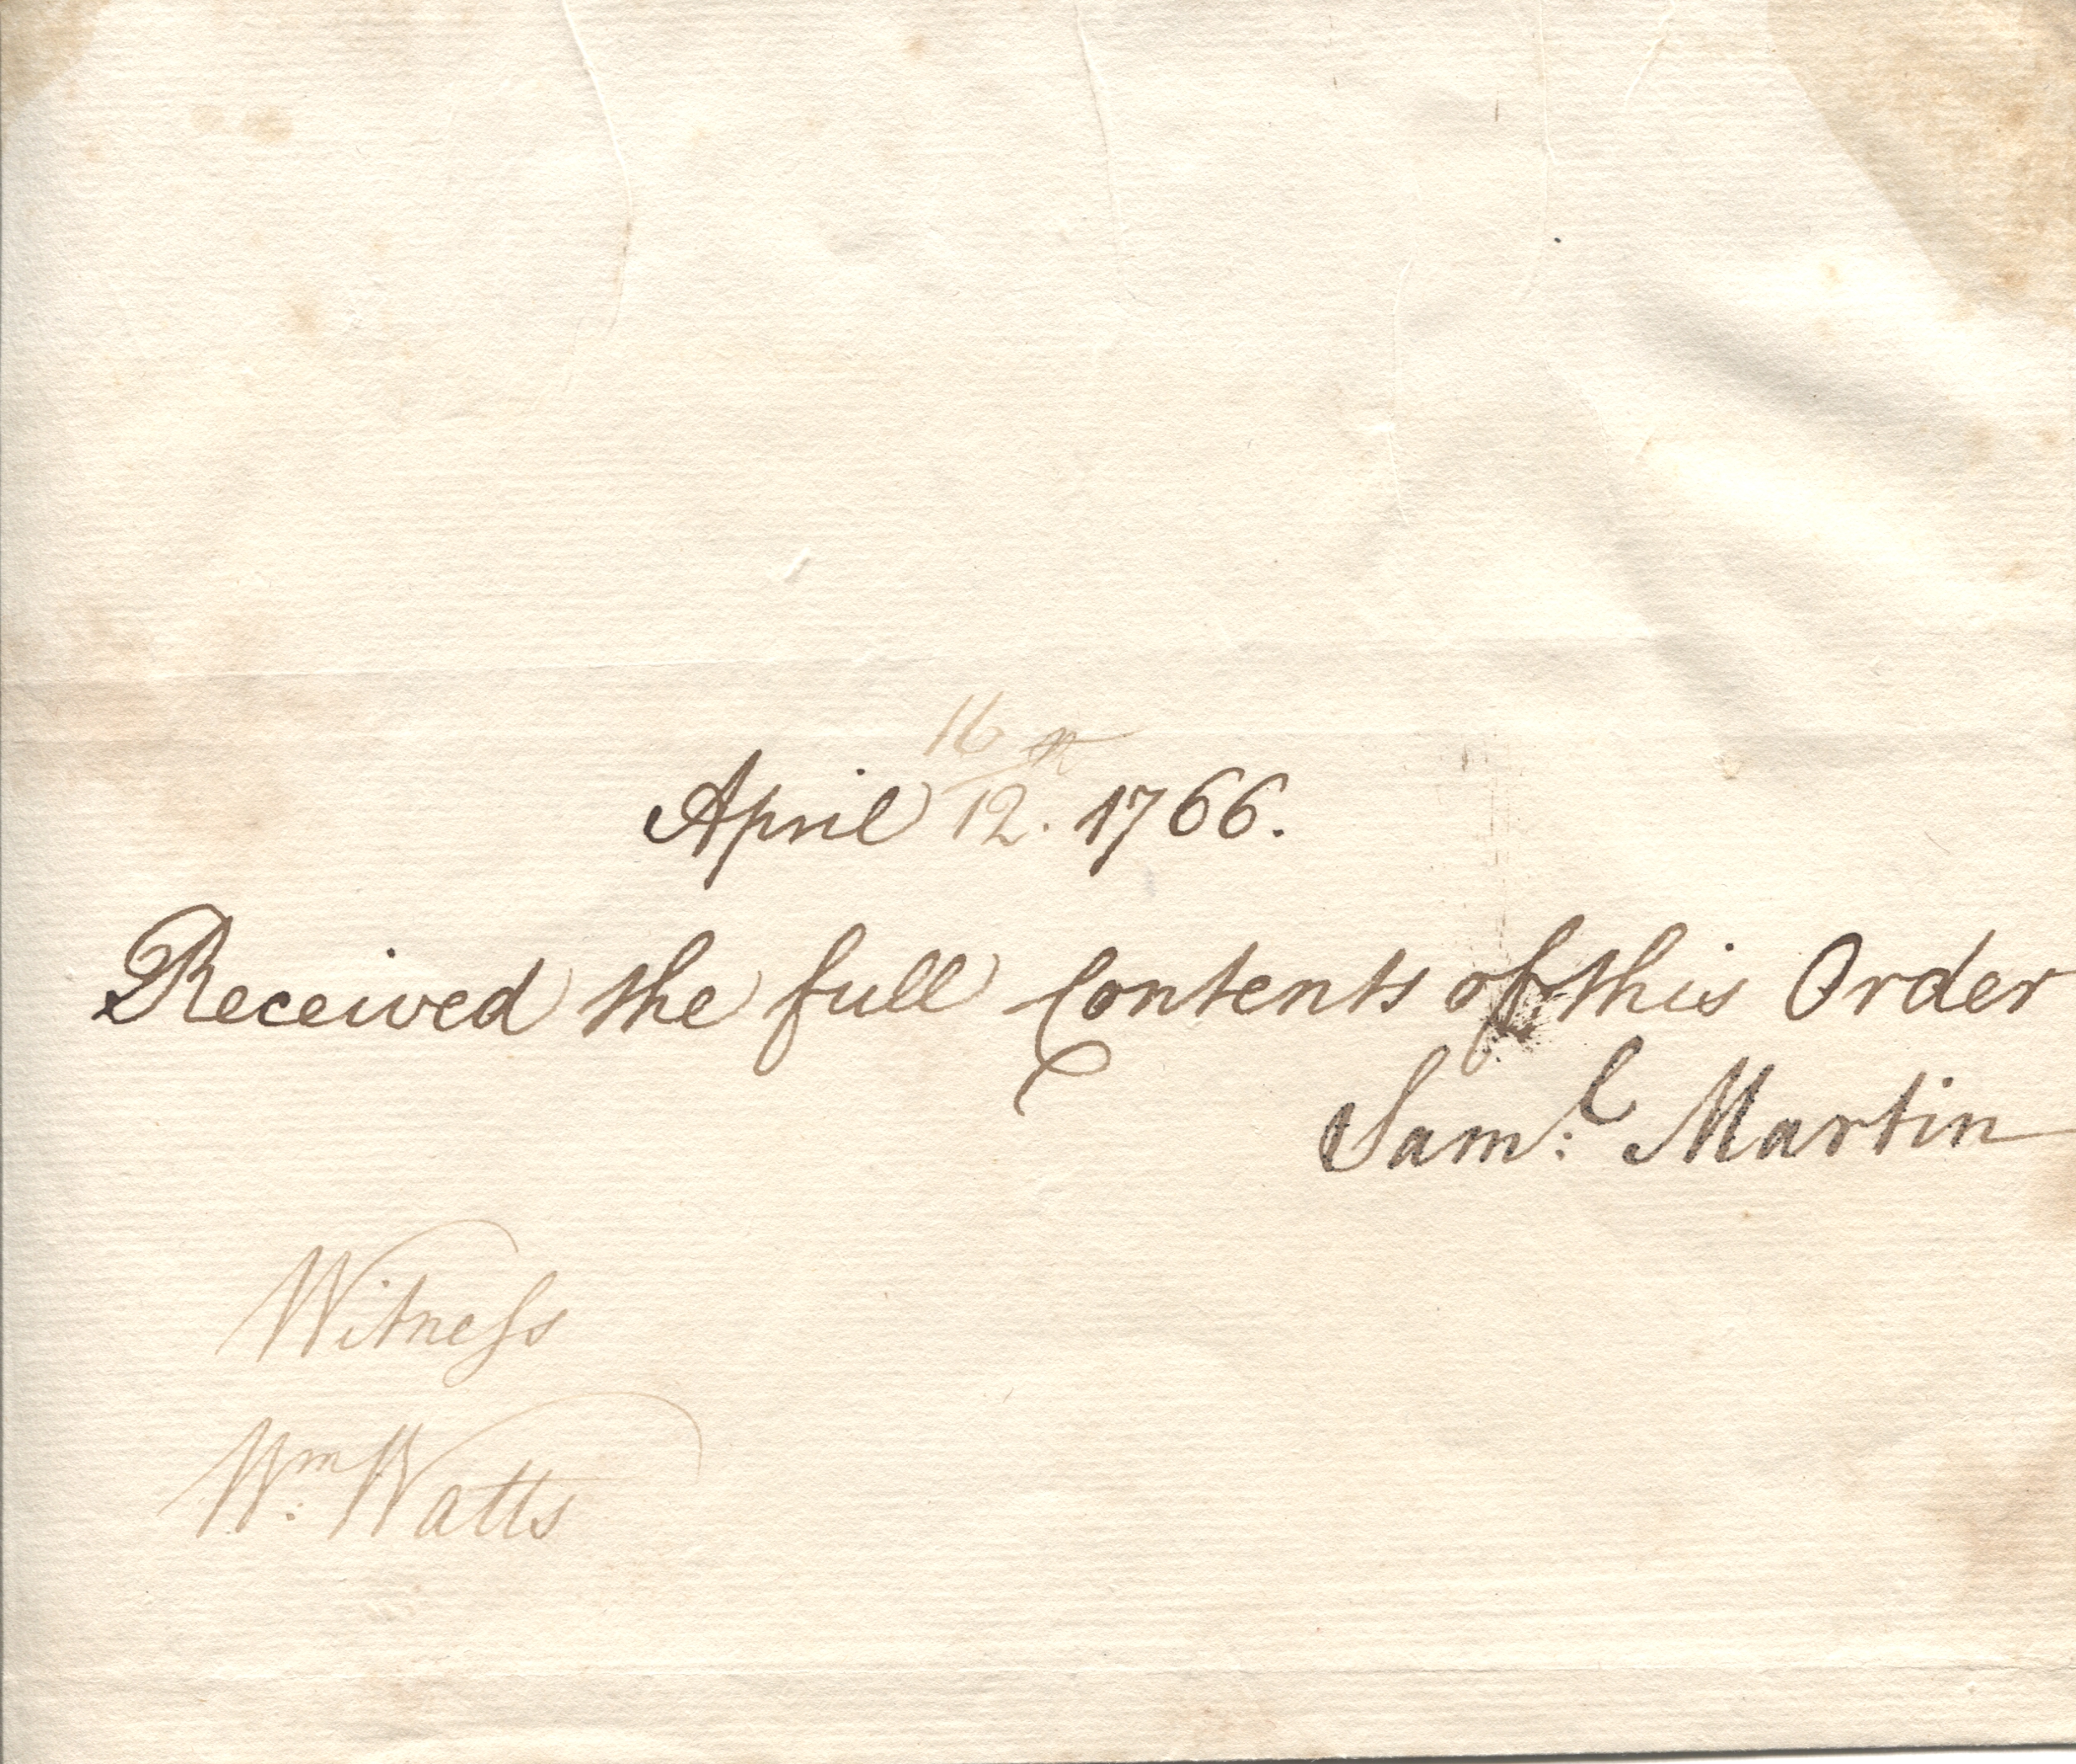 16
April 12. 1766.
Received the full Contents of this Order
Sam:l Martin
Witness
Wm: Watts